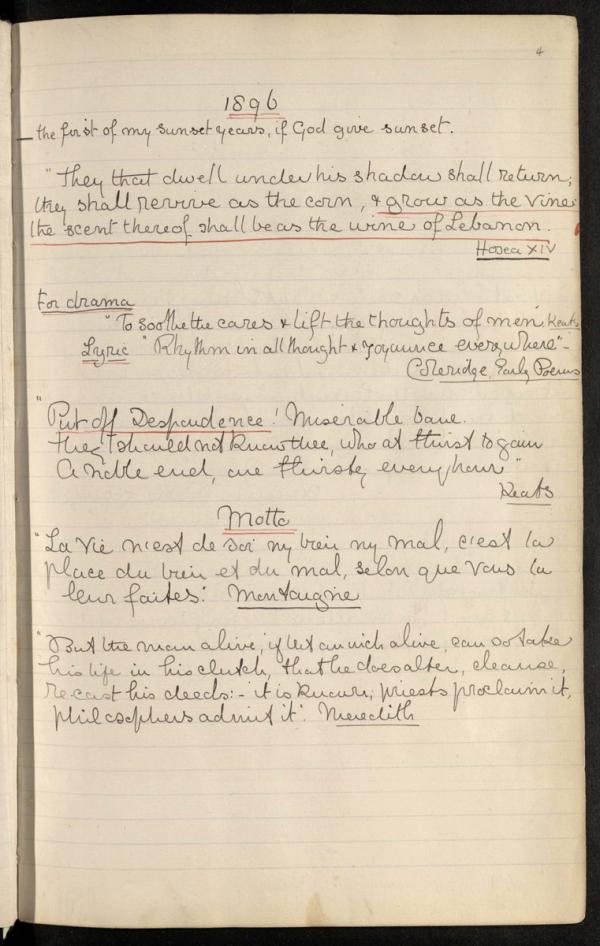 4
1896
the first of my sunset years, if God give sunset.
"They that dwell under his shadow shall return;
they shall revive as the corn, & grow as the vine:
the scent thereof shall be as the wine of Lebanon.
Hosea XIV
For drama
"To soothe the cares & lift the thoughts of men" Keats
Lyric "Rhythm in all thought & joyaunce everywhere" -
Coleridge, Early Poems
"Put off Despondence! Miserable bane.
They should not know thee, who athirst to gain
A noble end, are thirsty every hour"
Keats
Motto
"La Vie n'est de soi ny bien ny mal, c'est la
place du bien et du mal, selon que vous la
leur faites". Montaigne
"But the man alive, if but an inch alive, can so take
his life in his clutch, that he does alter, cleanse,
recast his deeds:- it is known; priests proclaim it,
philosophers admit it". Meredith